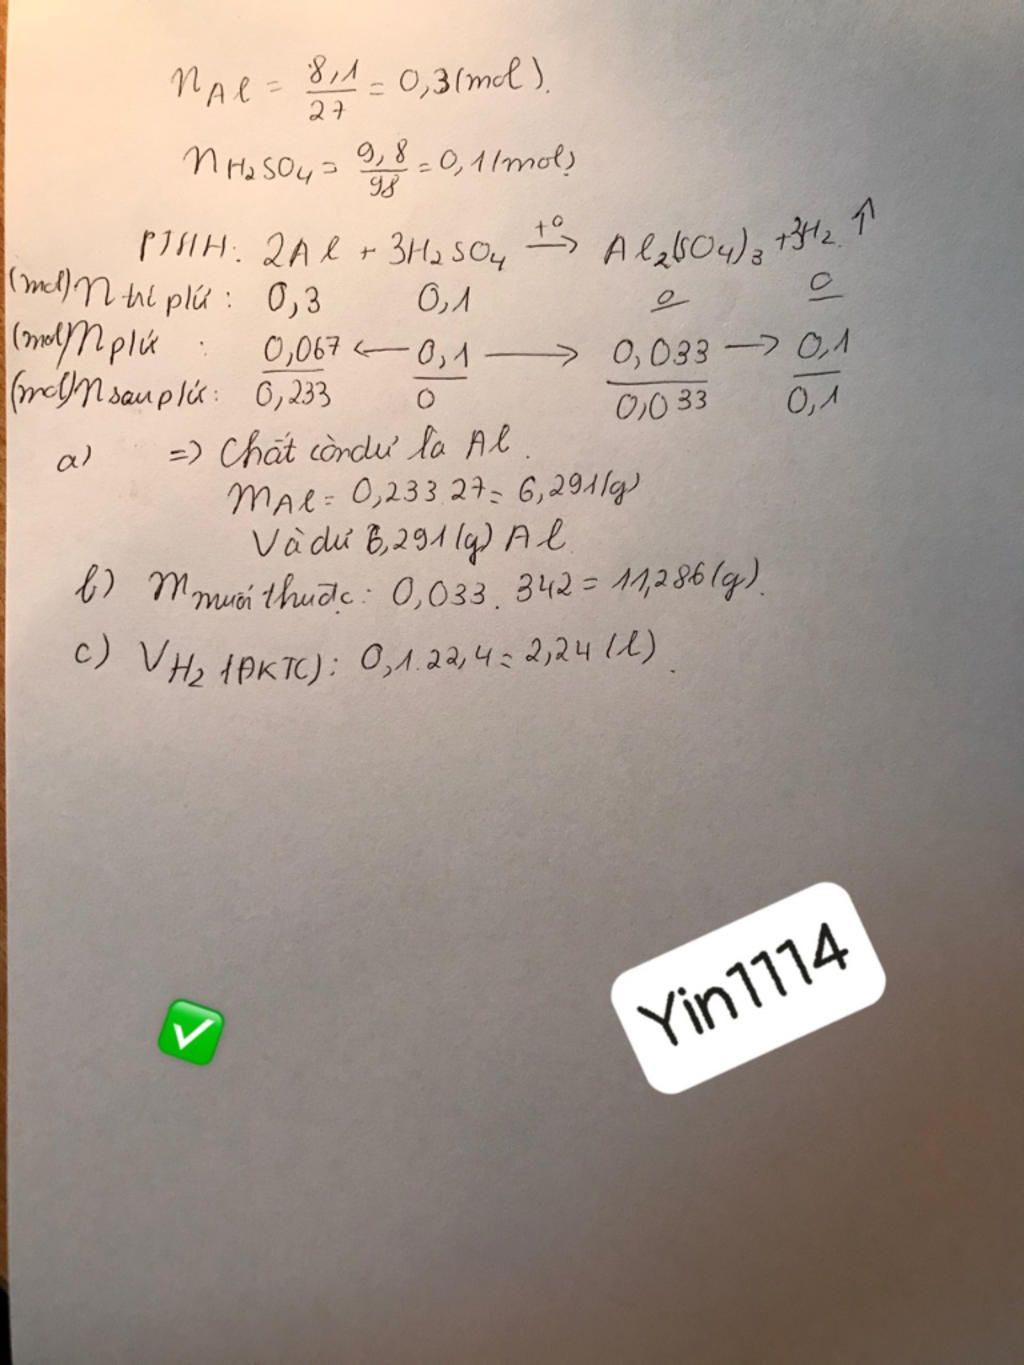 nAl = 8,1/27 = 0,3 (mol).
nH2SO4 = 9,8/98 = 0,1 (mol)
PTHH: 2Al + 3H2SO4 t° → Al2(SO4)3 + 3H2 ↑
(mol) n trc pứ: 0,3 0,1 0 0
(mol) n pứ : 0,067 ← 0,1 → 0,033 → 0,1
(mol) n sau pứ: 0,233 0 0,033 0,1
a) => Chất còn dư là Al.
mAl = 0,233.27 = 6,291 (g)
Và dư 6,291 (g) Al
b) m muối thuđc: 0,033. 342 = 11,286 (g).
c) VH2 (ĐKTC): 0,1.22,4 = 2,24 (l).
Yin1114